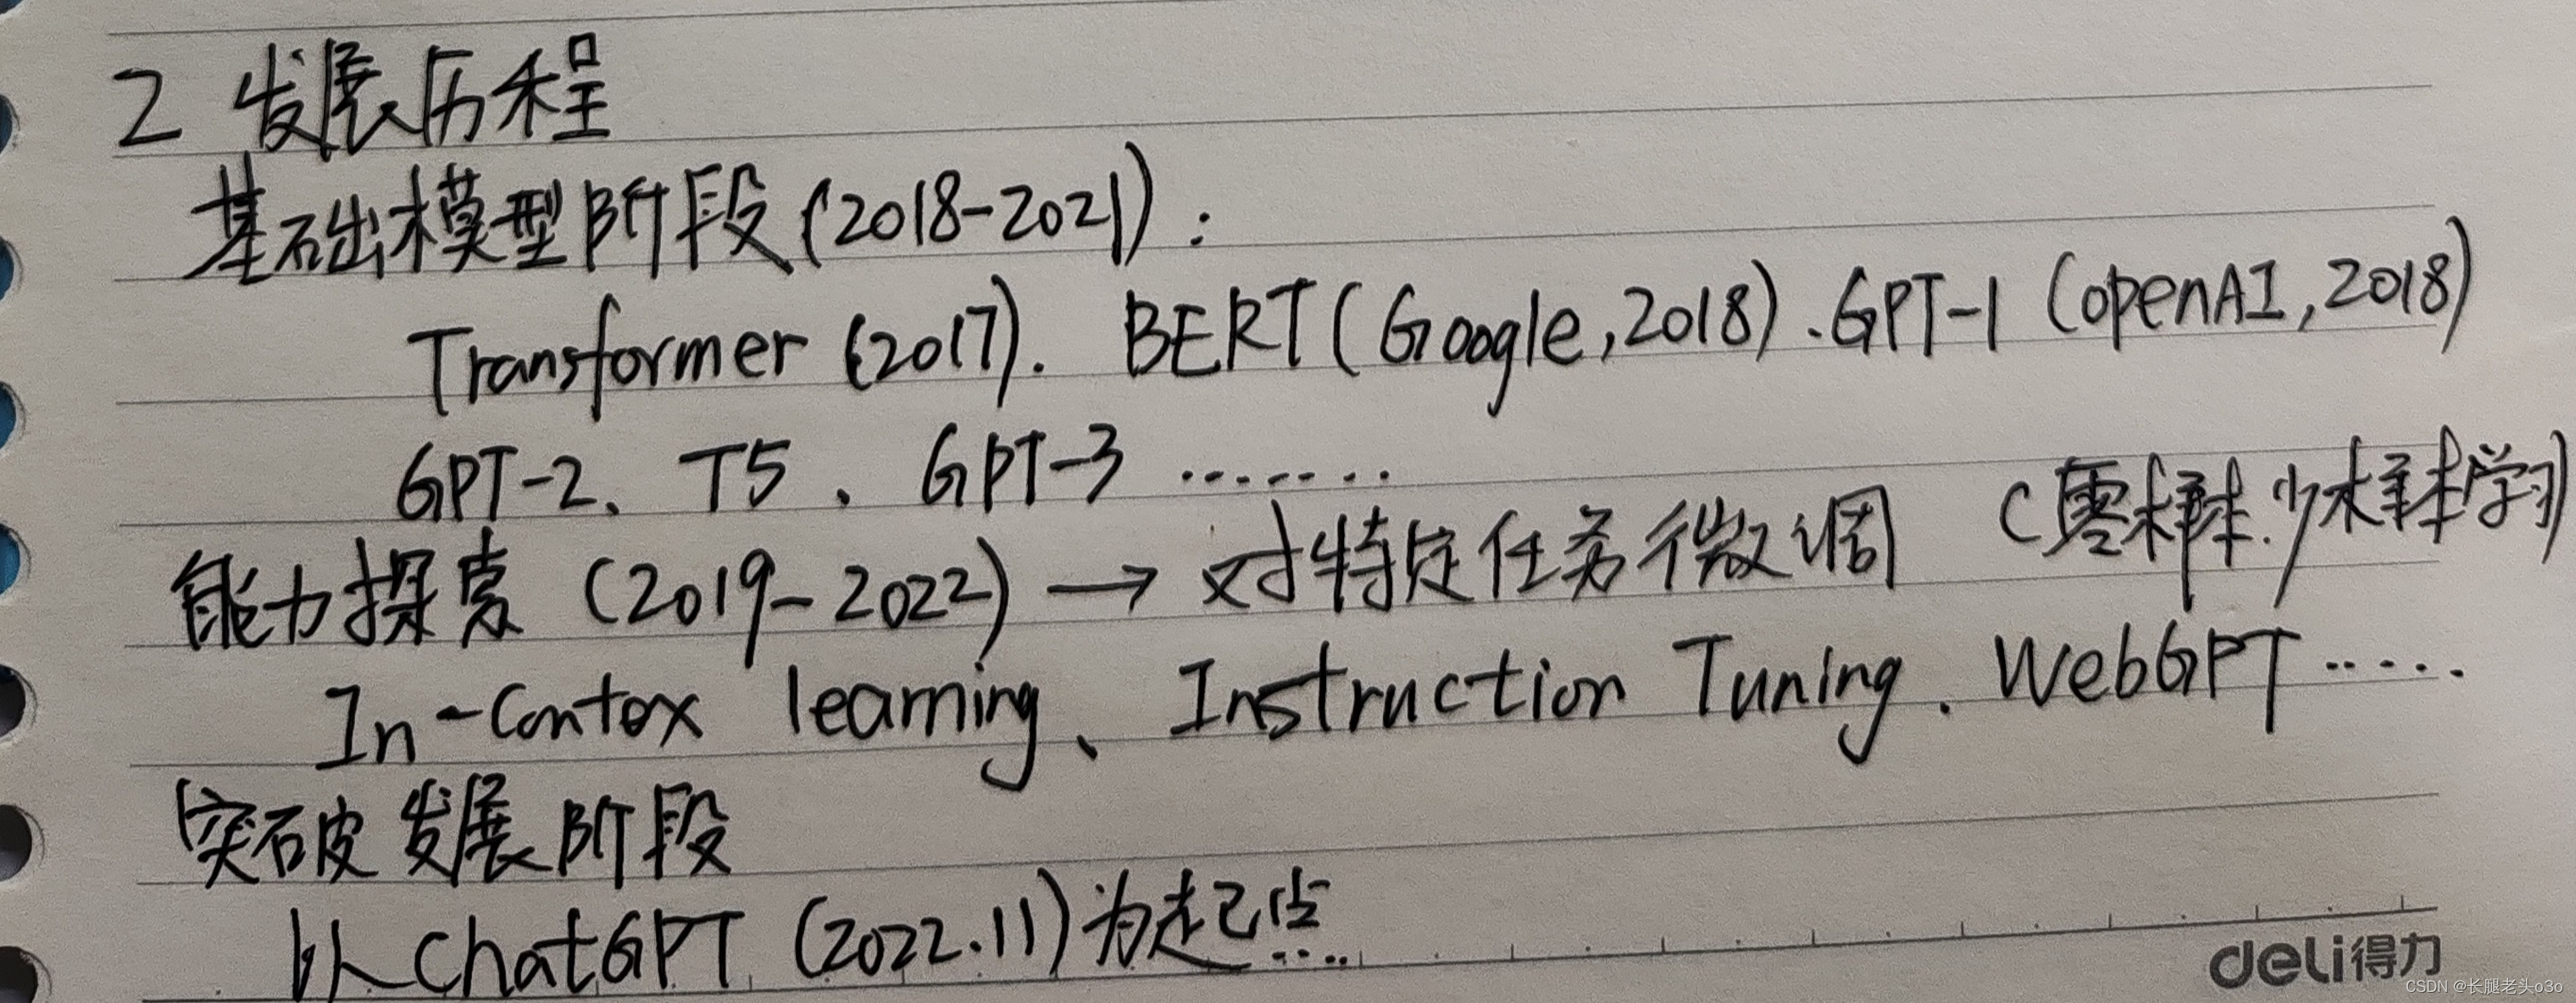 2 发展历程
基础模型阶段(2018-2021):
Transformer (2017). BERT(Google,2018).GPT-1 (openAI,2018)
GPT-2、T5、GPT-3 ........
能力探索 (2019-2022) → 对特定任务微调 (零样本.少样本学习)
In-Contox learning、Instruction Tuning. WebGPT ......
突破发展阶段
以ChatGPT (2022.11)为起点
deli得力
CSDN @长腿老头o3o